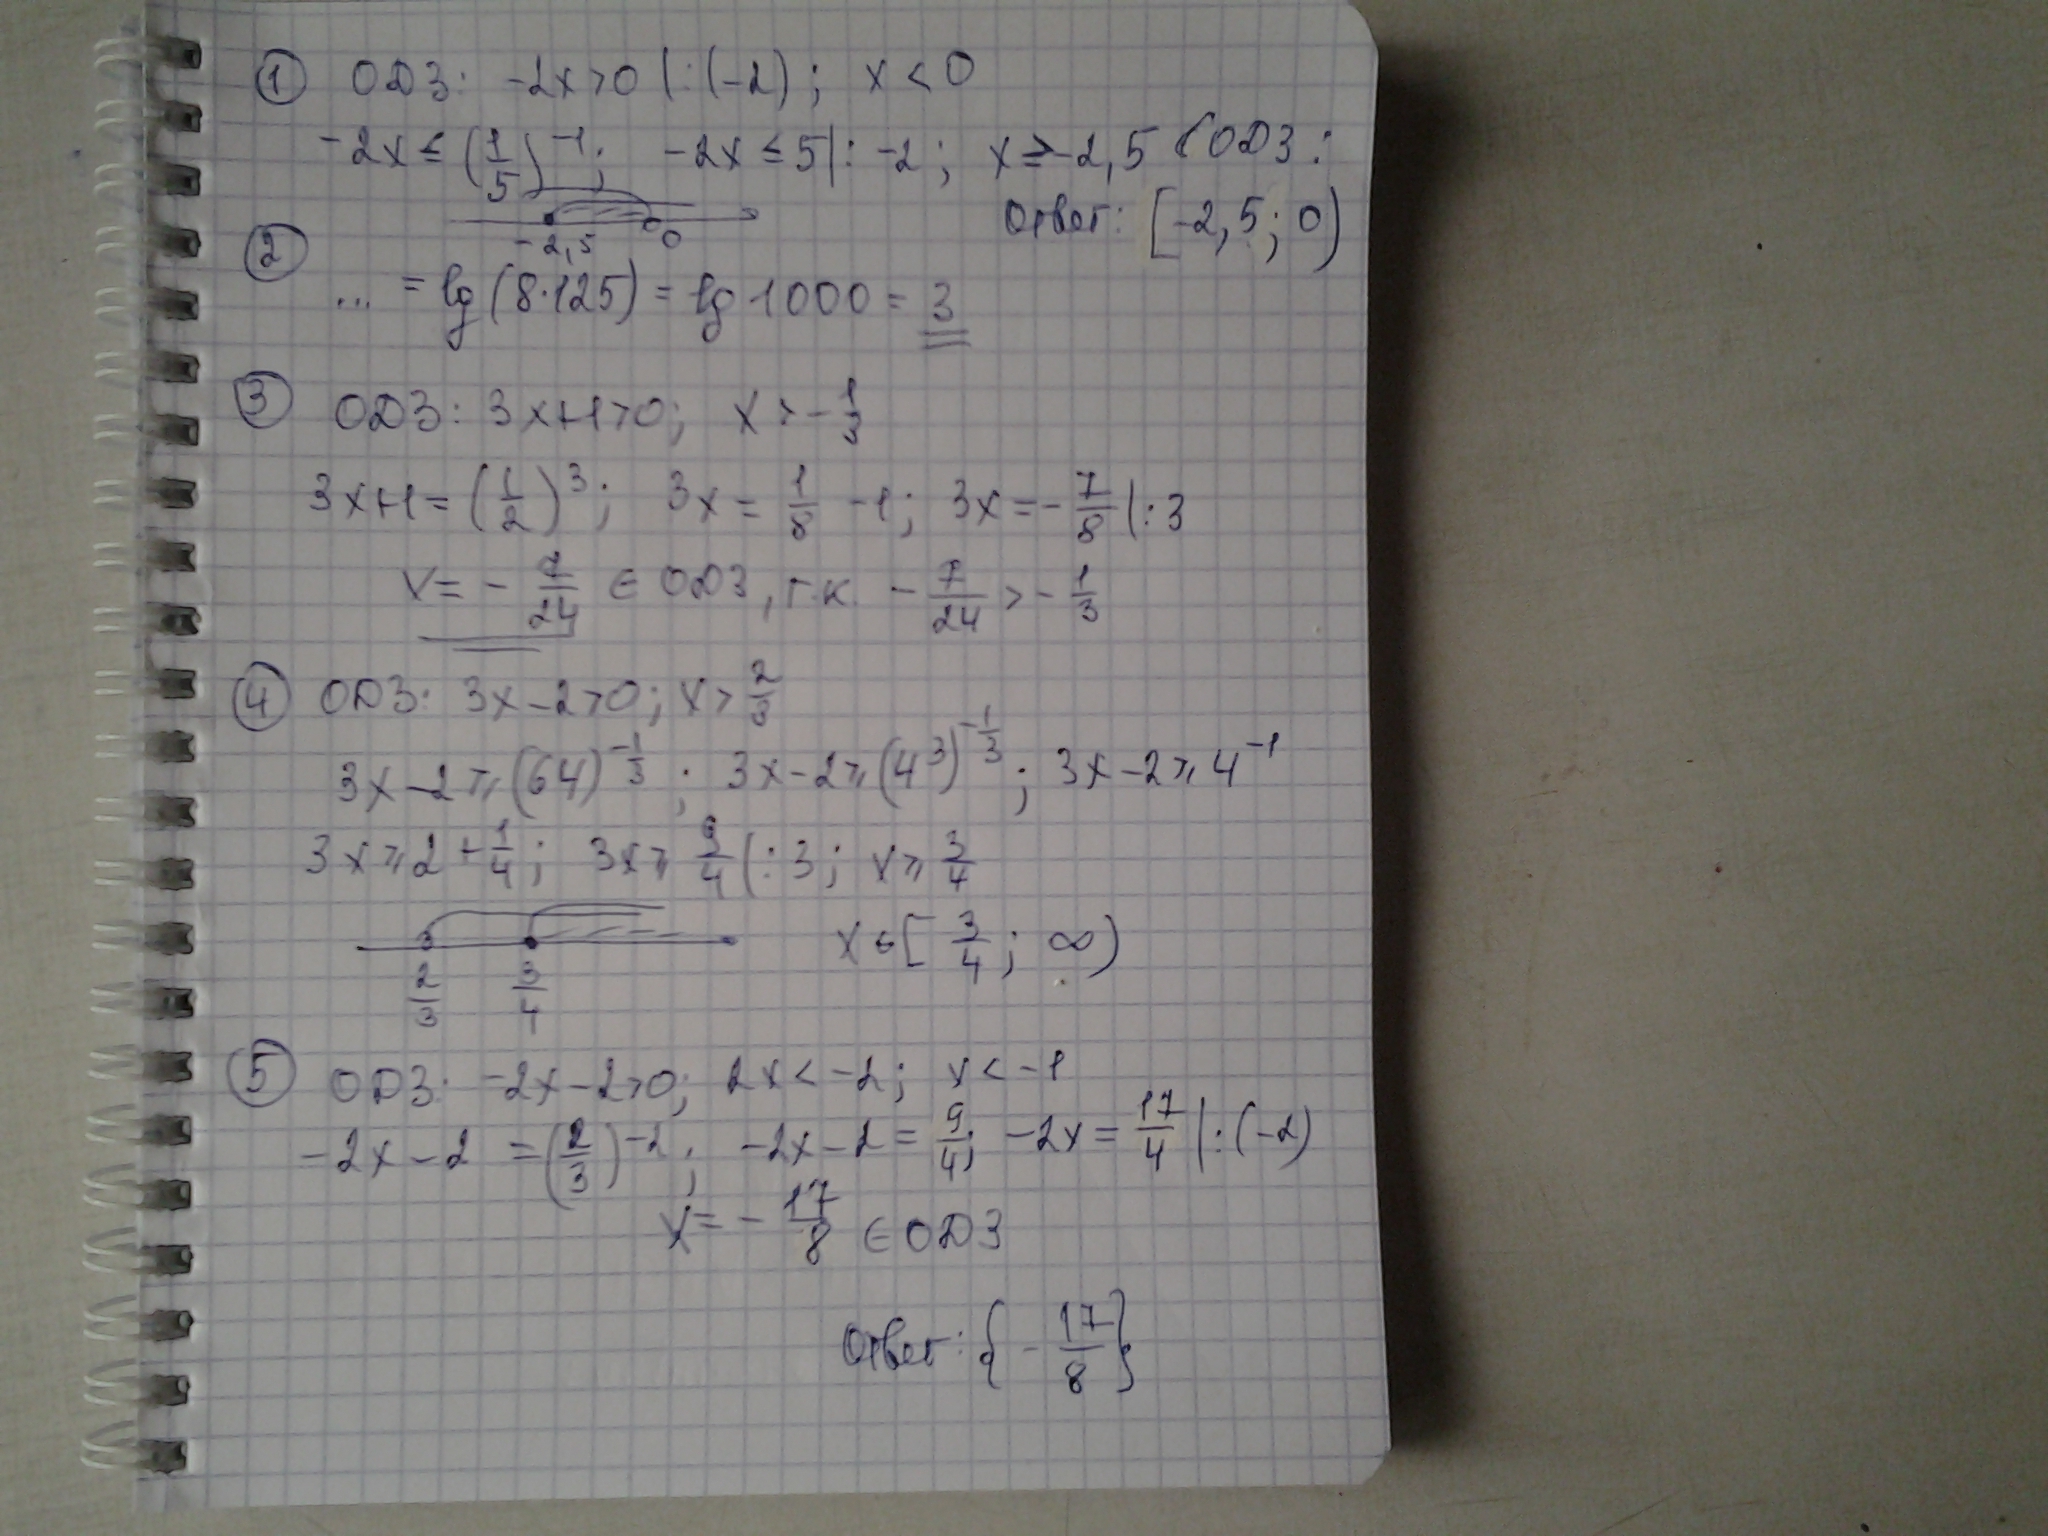 ① ОДЗ: -2x>0 |:(-2); x<0
-2x≤(1/5)^-1; -2x≤5|:-2; x≥-2,5 ОДЗ:
-2,5 0 Ответ: [-2,5; 0)
② ... = lg(8·125) = lg 1000 = 3
③ ОДЗ: 3x+1>0; x>-1/3
3x+1=(1/2)^3; 3x=1/8-1; 3x=-7/8|:3
x=-7/24 ∈ ОДЗ, т.к. -7/24>-1/3
④ ОДЗ: 3x-2>0; x>2/3
3x-2≥(64)^-1/3; 3x-2≥(4^3)^-1/3; 3x-2≥4^-1
3x≥2+1/4; 3x≥9/4|:3; x≥3/4
2/3 3/4 x∈[3/4; ∞)
⑤ ОДЗ: -2x-2>0; 2x<-2; x<-1
-2x-2=(2/3)^-2; -2x-2=9/4; -2x=17/4|:(-2)
x=-17/8 ∈ ОДЗ
Ответ: {-17/8}